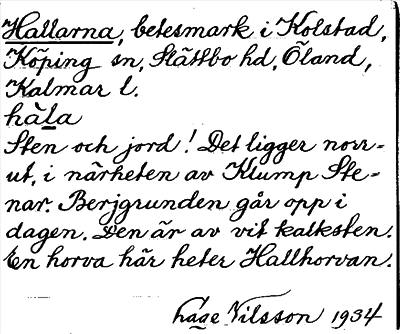 Hallarna, betesmark i Kolstad,
Köping sn, Slättbo hd, Öland,
Kalmar l.
hàla
Sten och jord! Det ligger norr-
ut, i närheten av Klump Ste-
nar. Berjgrunden går opp i
dagen. Den är av vit kalksten.
En horva här heter Hallhorvan.
håge Nilsson 1934